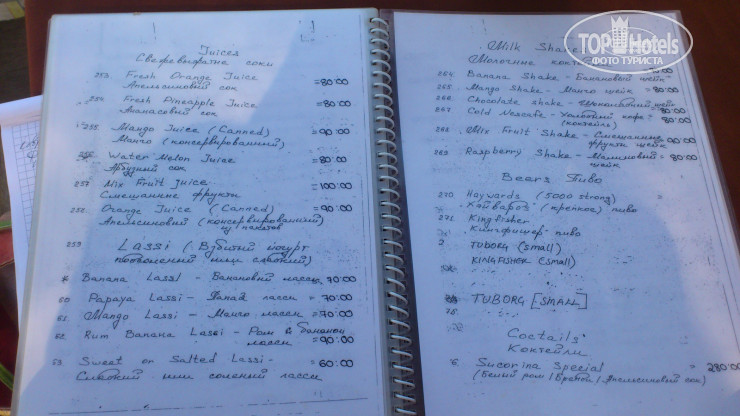 Juices
Свежевыжатые соки
253 Fresh Orange Juice =80:00
Апельсиновый сок
254 Fresh Pineapple Juice =80:00
Ананасовый сок
255 Mango Juice (Canned) =90:00
Манго (консервированный)
256 Water Melon Juice =80:00
Арбузный сок
257 Mix Fruit Juice =100:00
Смешанные фрукты
258 Orange Juice (Canned) =90:00
Апельсиновый (консервированный)
из пакетов
259 Lassi (Взбитый йогурт
посоленный или сладкий)
Banana Lassi - Банановый ласси =70:00
60 Papaya Lassi - ласси =70:00
61 Mango Lassi - Манго ласси =70:00
62 Rum Banana Lassi - Ром & банан
ласси =90:00
63 Sweet or Salted Lassi - =60:00
Сладкий или соленый ласси
Milk Shake
Молочные
264 Banana Shake - Банановый шейк =80:00
265 Mango Shake - Манго шейк =80:00
266 Chocolate Shake - Шоколадный шейк
267 Cold Nescafe - Холодный кофе =80:00
(коктейль)
268 Mix Fruit Shake - Смешанные
фрукты шейк 90:00
269 Raspberry Shake - Малиновый шейк =80:00
Beers Пиво
270 Haywards (5000 strong)
Хайвардс (крепкое) пиво
271 Kingfisher
Кингфишер - пиво
2 TUBORG (small)
KING FISHER (small)
TUBORG [SMALL]
Coctails
Коктейли
76 Sucorina Special =280:00
(Белый ром / Бренди / Апельсиновый сок)
TOP Hotels
ФОТО ТУРИСТА